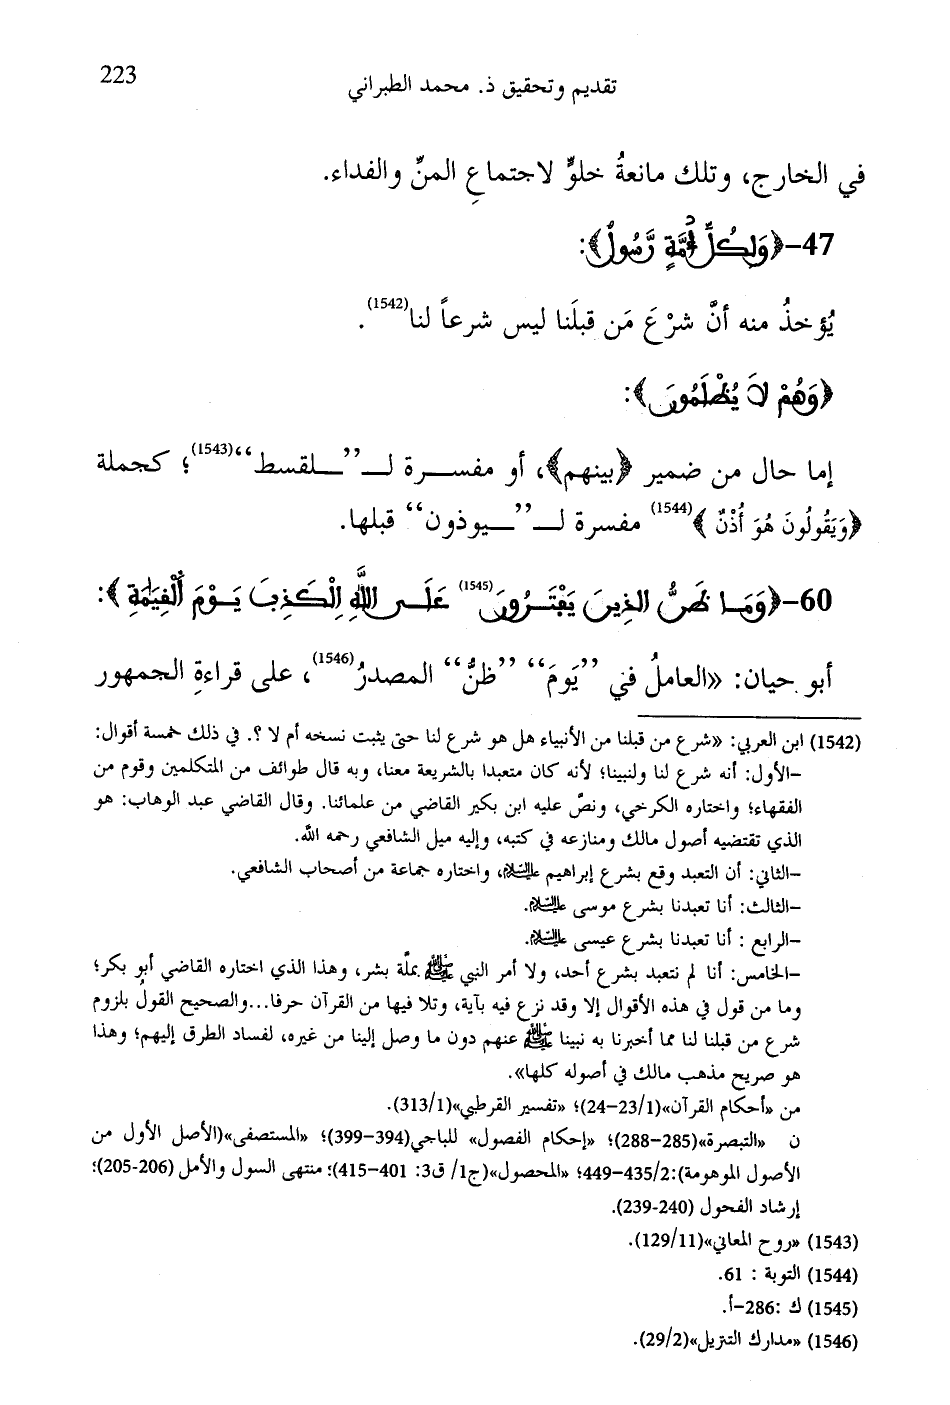 223
تقديم وتحقيق ذ. محمد الطبراني
في الخارج، وتلك مانعةُ خلوٍّ لاجتماعِ المنِّ والفداء.
47-﴿وَلِكُلِّ أُمَّةٍ رَّسُولٌ﴾:
يُؤخذُ منه أنَّ شرْعَ مَن قبلَنا ليس شرعاً لنا(1542).
﴿وَهُمْ لَا يُظْلَمُونَ﴾:
إما حال من ضمير ﴿بينهم﴾، أو مفسرة لـ”ـلقسط“(1543)؛ كجملة
﴿وَيَقُولُونَ هُوَ أُذُنٌ﴾(1544) مفسرة لـ”ـيوذون“ قبلها.
60-﴿وَمَا ظَنُّ الذِينَ يَفْتَرُونَ(1545) عَلَى اللَّهِ اِلْكَذِبَ يَوْمَ اَلْقِيَٰمَةِ﴾:
أبو حيان: «العاملُ في ”يَومَ“ ”ظنُّ“ المصدرُ(1546)، على قراءةِ الجمهور
(1542) ابن العربي: «شرع من قبلنا من الأنبياء هل هو شرع لنا حتى يثبت نسخه أم لا ؟. في ذلك خمسة أقوال:
-الأول: أنه شرع لنا ولنبينا؛ لأنه كان متعبدا بالشريعة معنا، وبه قال طوائف من المتكلمين وقوم من
الفقهاء؛ واختاره الكرخي، ونصَّ عليه ابن بكير القاضي من علمائنا. وقال القاضي عبد الوهاب: هو
الذي تقتضيه أصول مالك ومنازعه في كتبه، وإليه ميل الشافعي رحمه الله.
-الثاني: أن التعبد وقع بشرع إبراهيم عليه السلام، واختاره جماعة من أصحاب الشافعي.
-الثالث: أنا تعبدنا بشرع موسى عليه السلام.
-الرابع : أنا تعبدنا بشرع عيسى عليه السلام.
-الخامس: أنا لم نتعبد بشرع أحد، ولا أمر النبي ﷺ بملّة بشر، وهذا الذي اختاره القاضي أبو بكر؛
وما من قول في هذه الأقوال إلا وقد نزع فيه بآية، وتلا فيها من القرآن حرفا...والصحيح القولُ بلزوم
شرع من قبلنا لنا مما أخبرنا به نبينا ﷺ عنهم دون ما وصل إلينا من غيره، لفساد الطرق إليهم؛ وهذا
هو صريح مذهب مالك في أصوله كلها».
من «أحكام القرآن»(23/1-24)؛ «تفسير القرطبي»(313/1).
ن «التبصرة»(285-288)؛ «إحكام الفصول» للباجي(394-399)؛ «المستصفى»(الأصل الأول من
الأصول الموهومة):435/2-449؛ «المحصول»(ج1/ ق3: 401-415)؛ منتهى السول والأمل (206-205)؛
إرشاد الفحول (240-239).
(1543) «روح المعاني»(129/11).
(1544) التوبة : 61.
(1545) ك :286-أ.
(1546) «مدارك التنزيل»(29/2).